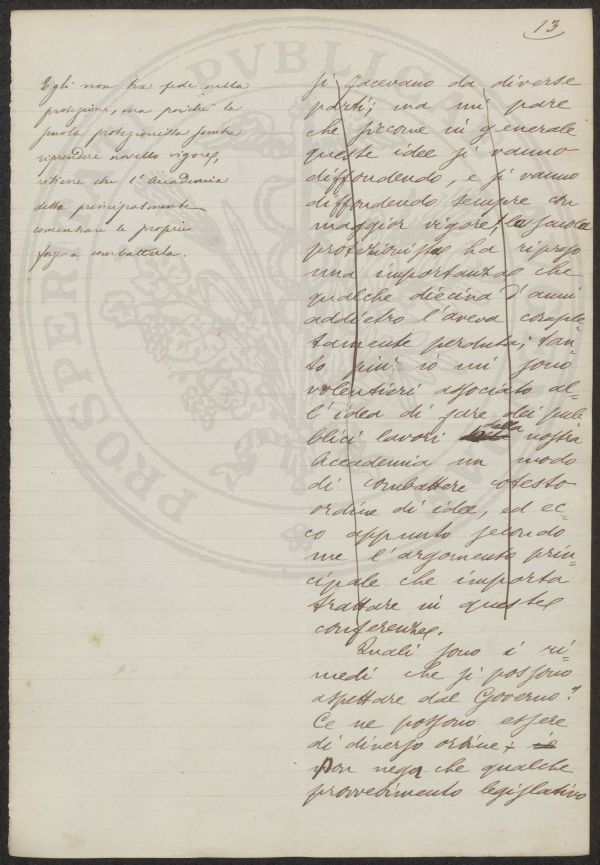 13
Egli non ha fede nella
protezione, ma poiché la
scuola protezionista sembra
riprendere novello vigore,
ritiene che l'Accademia
debba principalmente
cominciare le proprie
forze a combatterla.
si facevano da diverse
parti; ma mi pare
che siccome in generale
queste idee si vanno
diffondendo, e si vanno
diffondendo sempre con
maggior vigore, la scuola
protezionista ha ripreso
una importanza che
qualche diecina d'anni
addietro l'aveva comple-
tamente perduta; tan-
to più io mi sono
volentieri associato al-
l'idea di fare dei pub-
blici lavori della nostra
Accademia un modo
di combattere cotesto
ordine di idee, ed ec-
co appunto secondo
me l'argomento prin-
cipale che importa
trattare in queste
conferenze.
Quali sono i ri-
medi che si possono
aspettare dal Governo?
Ce ne possono essere
di diverso ordine;
Non nega che qualche
provvedimento legislativo
PVBLICA
PROSPERITÀ